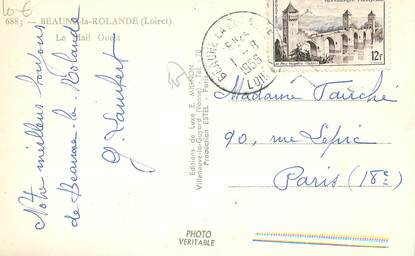 10€
6883 - BEAUNE-la-ROLANDE (Loiret)
Le Mail Ouest
Notre meilleur toujours
de Beaune-la-Rolande
G. Lambert
Editions de Luxe E. MIGNON
Villeneuve-la-Guyard (Yonne) - Tél. 70
Production ESTEL - Paris
PHOTO
VERITABLE
BEAUNE LA ROLANDE
1 - 8
1956
LOIRET
12F
Madame Fauché
90, rue Lepic
Paris (18e)